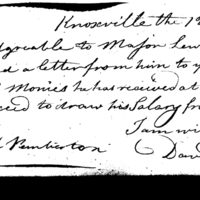 Knoxville the 1
greable to Major Lew
d a letter from him to y
Monies he has received at
eed to draw his Salary fr
I am wi
Pemberton
Davi